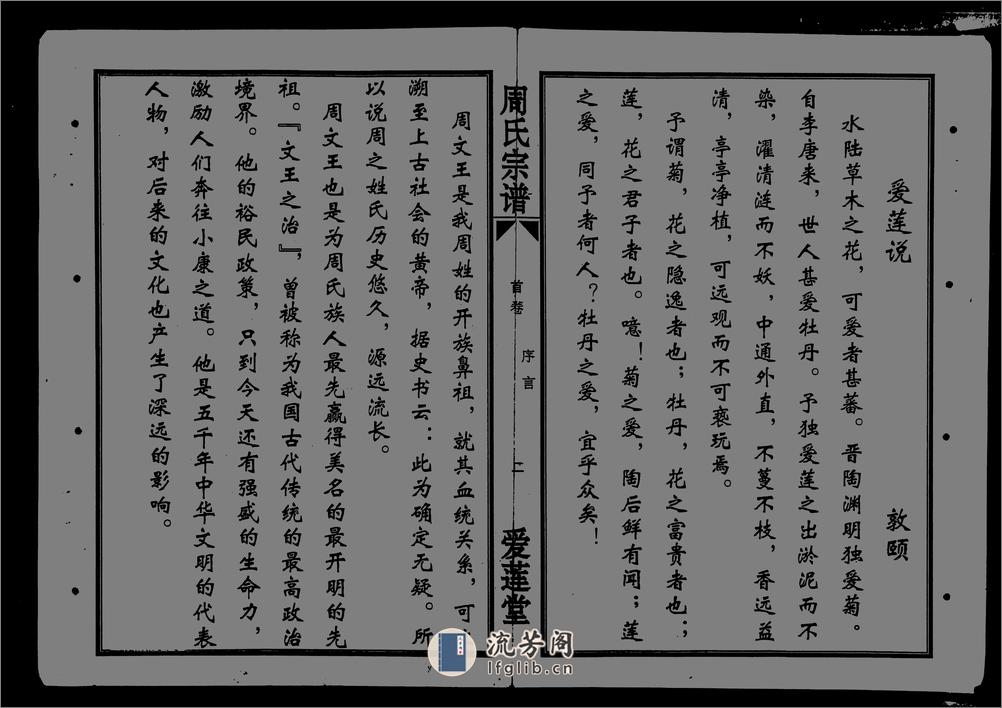 爱莲说
敦颐
水陆草木之花，可爱者甚蕃。晋陶渊明独爱菊。
自李唐来，世人甚爱牡丹。予独爱莲之出淤泥而不
染，濯清涟而不妖，中通外直，不蔓不枝，香远益
清，亭亭净植，可远观而不可亵玩焉。
予谓菊，花之隐逸者也；牡丹，花之富贵者也；
莲，花之君子者也。噫！菊之爱，陶后鲜有闻；莲
之爱，同予者何人？牡丹之爱，宜乎众矣！
周氏宗谱
首卷
序言
二
爱莲堂
周文王是我周姓的开族鼻祖，就其血统关系，可
溯至上古社会的黄帝，据史书云：此为确定无疑。所
以说周之姓氏历史悠久，源远流长。
周文王也是为周氏族人最先赢得美名的最开明的先
祖。『文王之治』，曾被称为我国古代传统的最高政治
境界。他的裕民政策，只到今天还有强盛的生命力，
激励人们奔往小康之道。他是五千年中华文明的代表
人物，对后来的文化也产生了深远的影响。
流芳阁
lfglib.cn